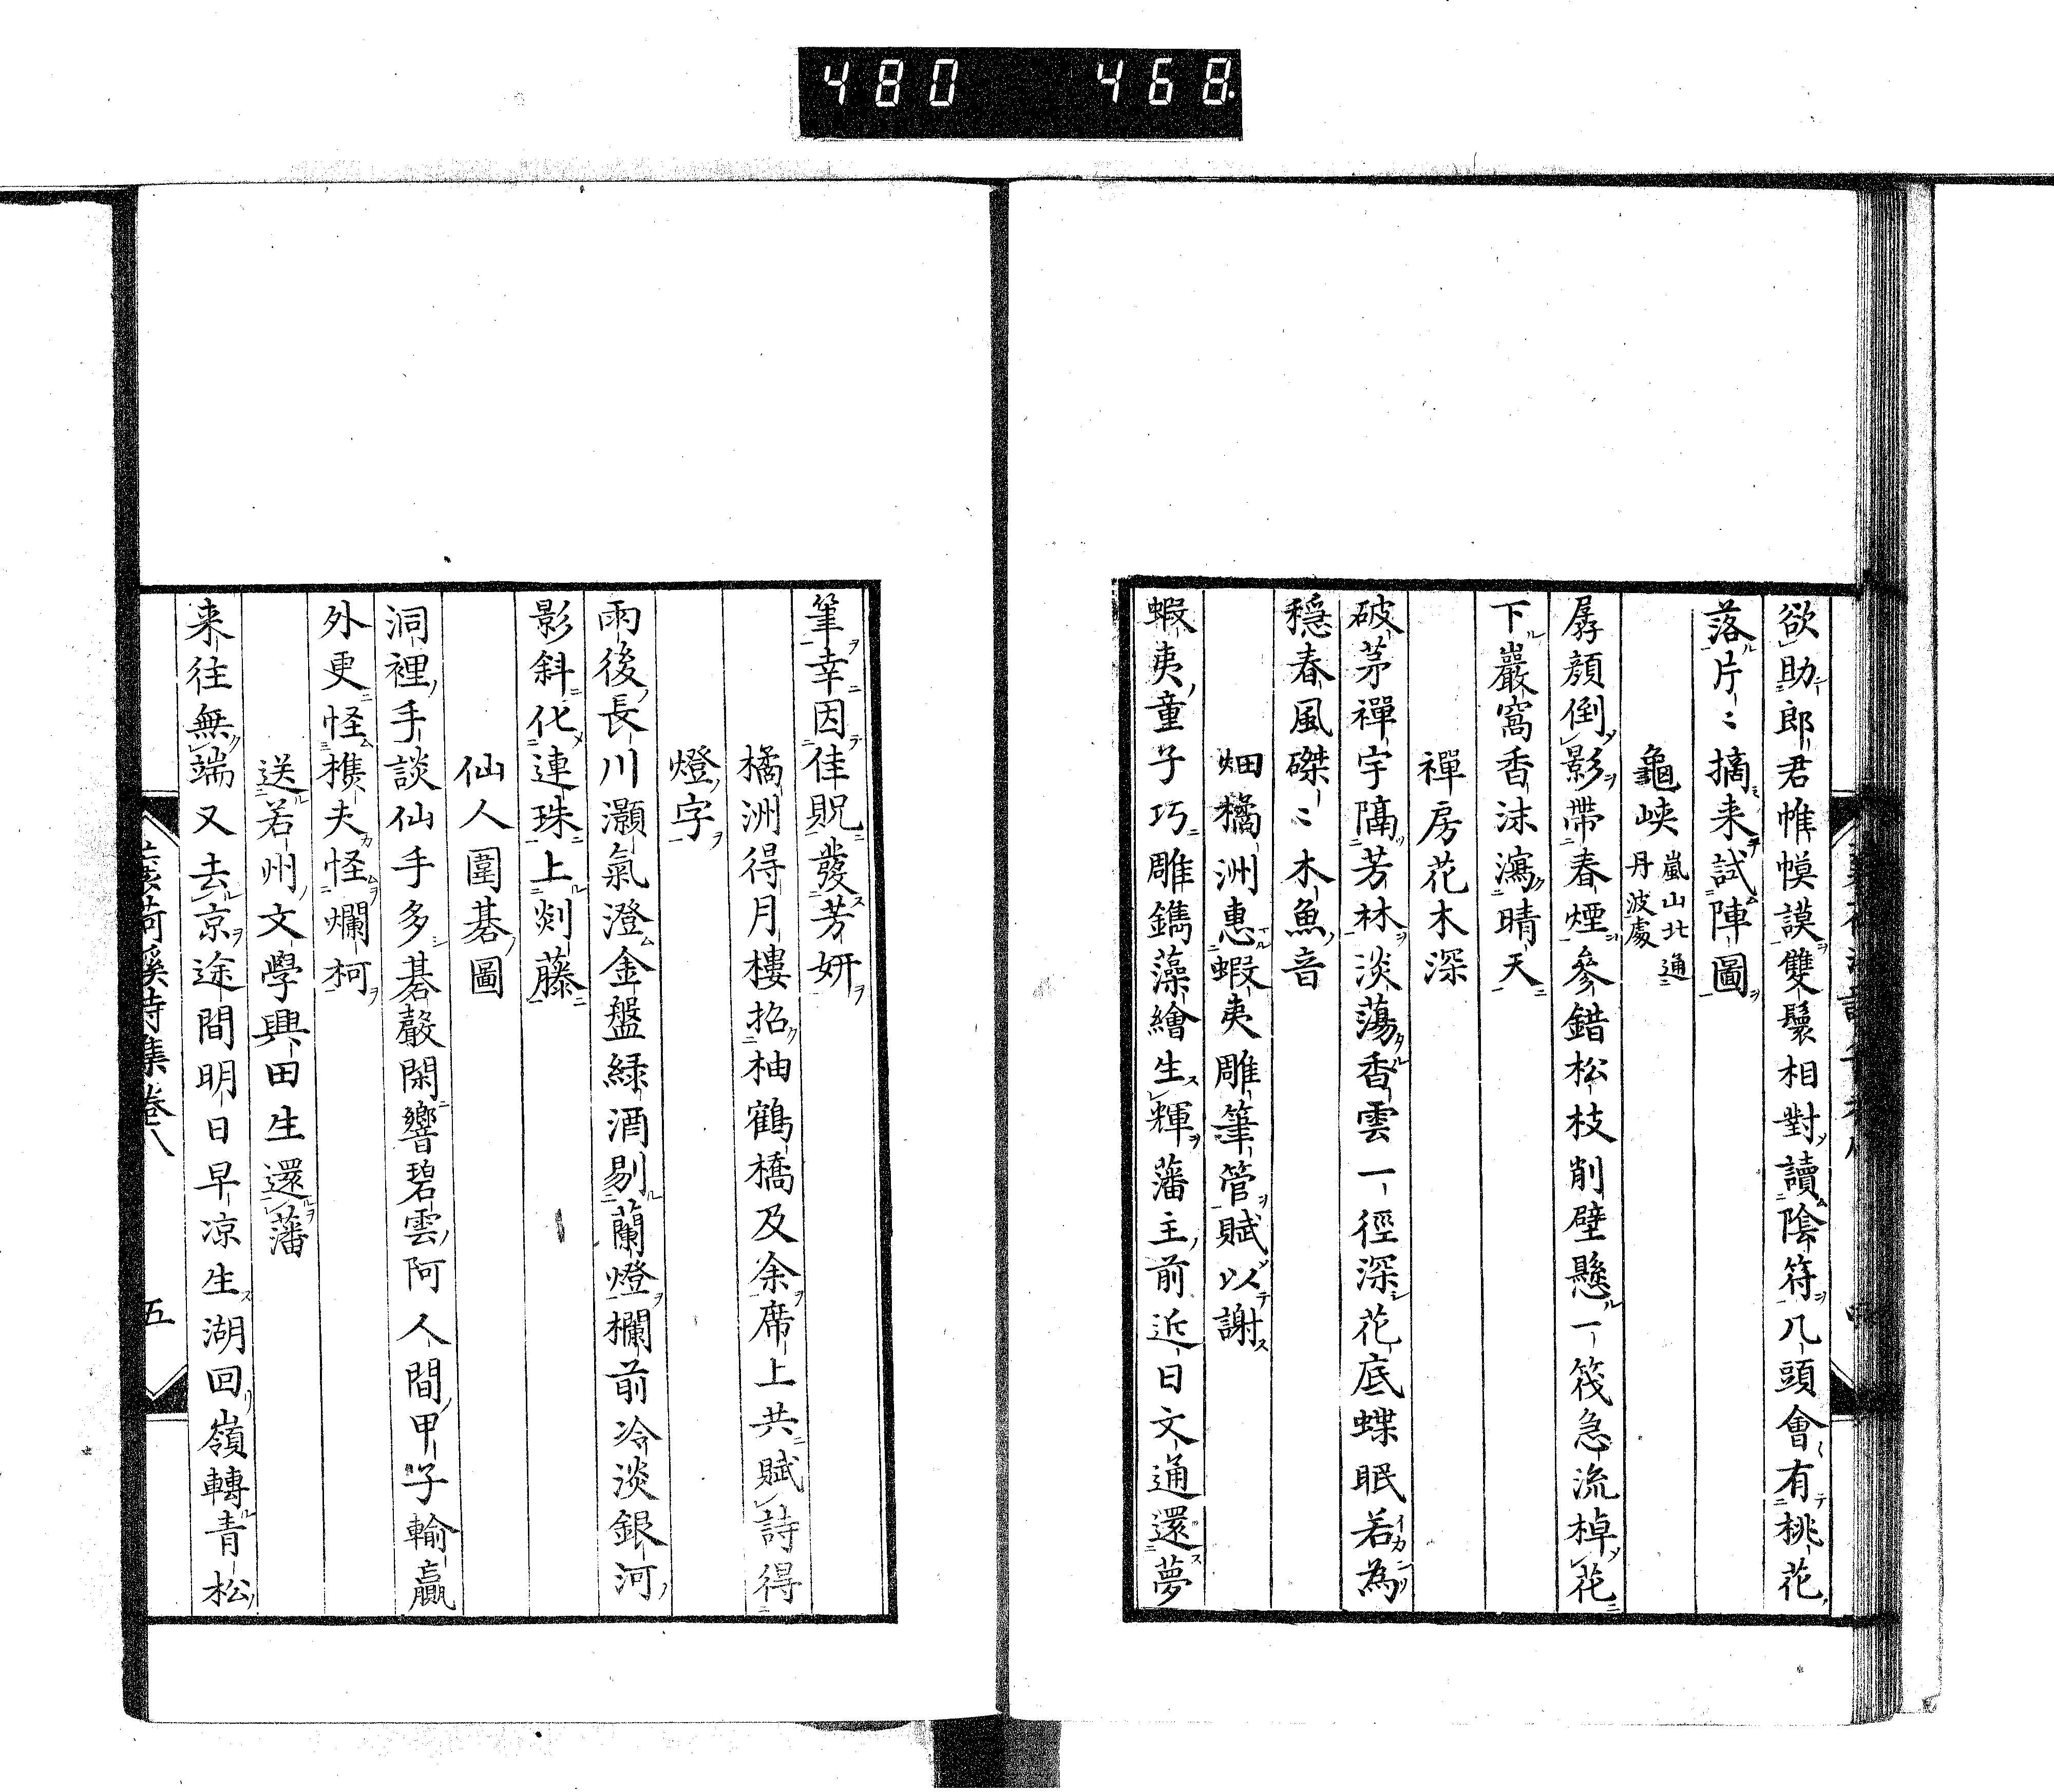 480 468.
欲助郎君帷幙謨雙鬟相對讀陰符几頭會有桃花
落片〻摘来試陣圖
龜峽 嵐山北通
丹波處
孱顔倒影帶春煙參錯松枝削壁懸一筏急流棹花
下巖窩香沫瀉晴天
禪房花木深
破茅禪宇隔芳林淡蕩香雲一徑深花底蝶眠若為
穩春風磔〻木魚音
畑橘洲惠蝦夷雕筆管賦以謝
蝦夷童子巧雕鐫藻繪生輝藩主前近日文通還夢
筆幸因佳貺發芳妍
橘洲得月樓招柚鶴橋及余席上共賦詩得
燈字
雨後長川灝氣澄金盤綠酒剔蘭燈欄前冷淡銀河
影斜化連珠上剡藤
仙人圍碁圖
洞裡手談仙手多碁聲閑響碧雲阿人間甲子輸贏
外更怪樵夫怪爛柯
送若州文學興田生還藩
来往無端又去京途間明日早凉生湖回嶺轉青松
荷溪詩集卷八
五